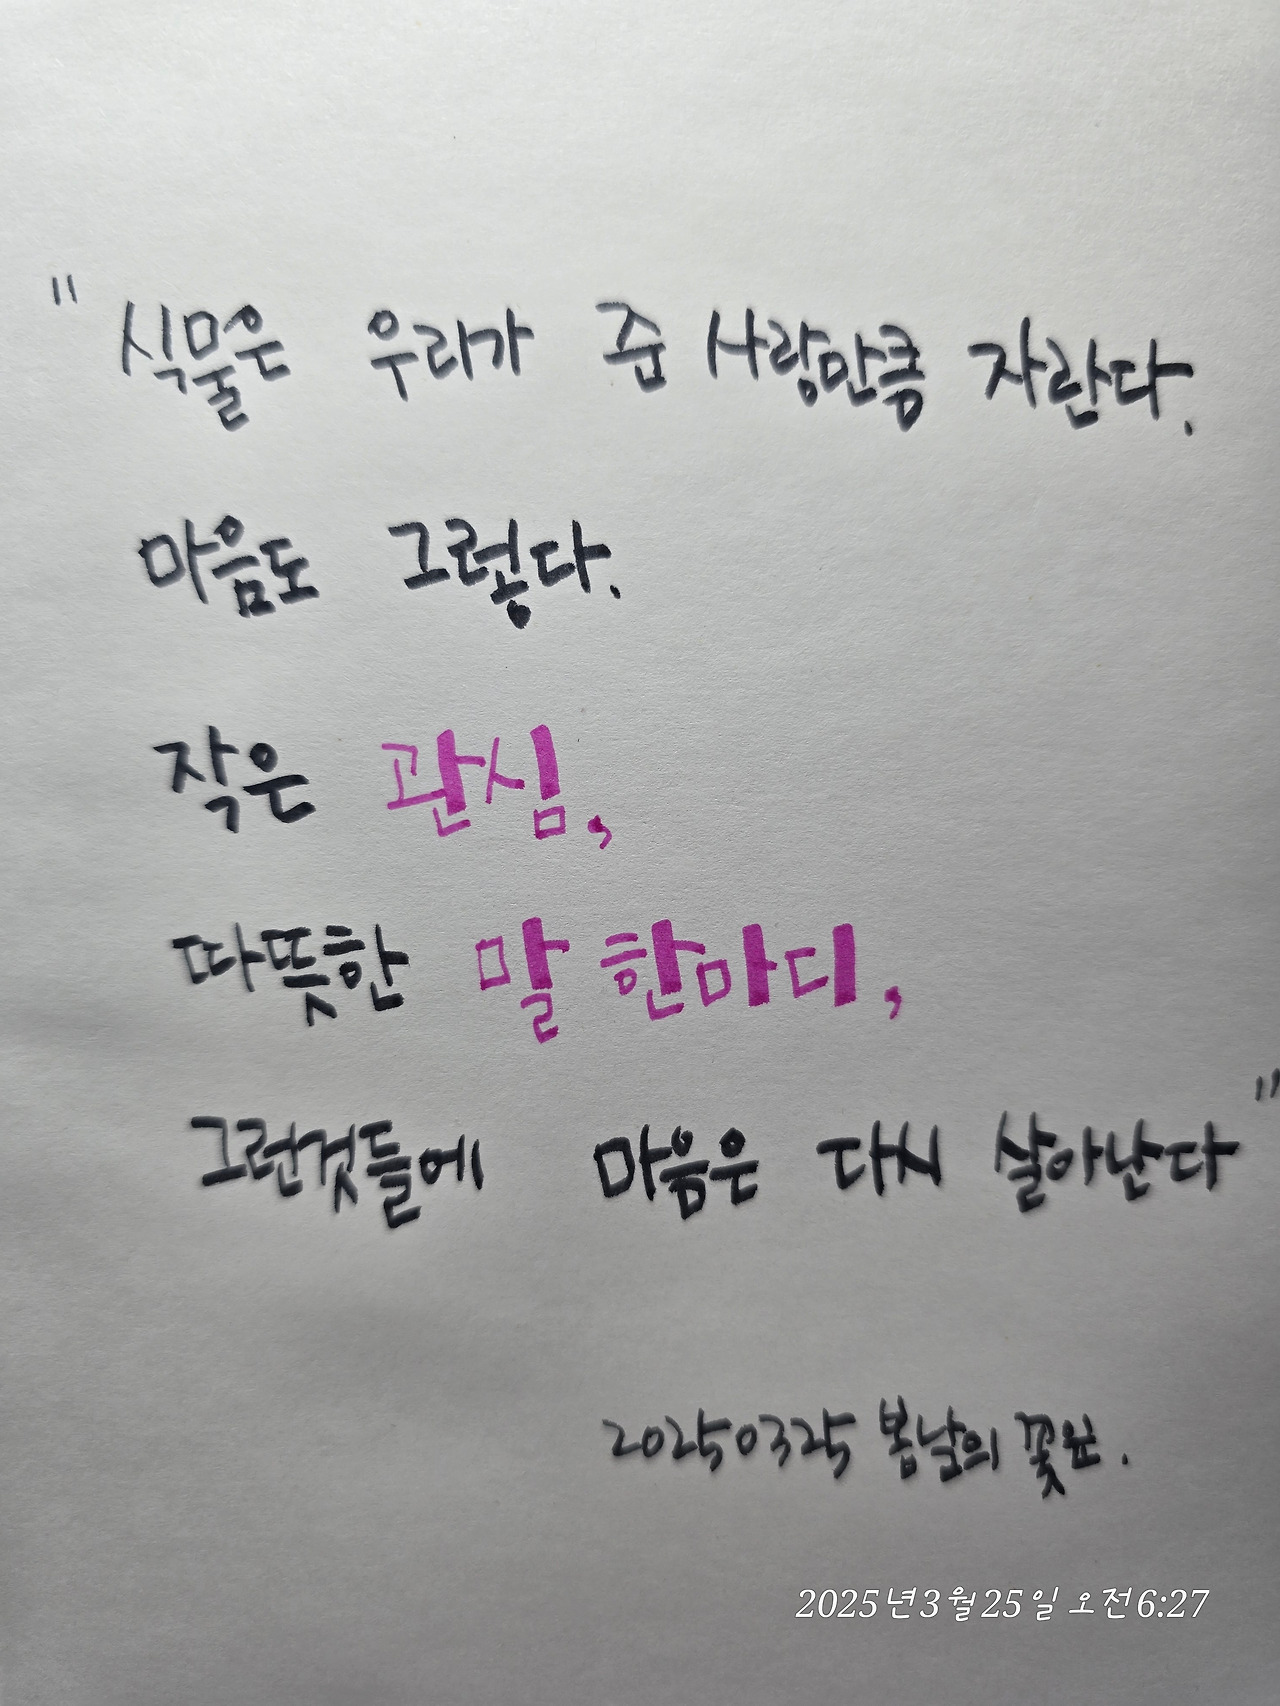 "식물은 우리가 준 사랑만큼 자란다.
마음도 그렇다.
작은 관심,
따뜻한 말 한마디,
그런것들에 마음은 다시 살아난다"
20250325 봄날의 꽃잎.
2025년3월25일 오전6:27